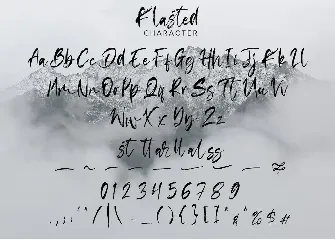 Flasted
CHARACTER
Aa Bb Cc Dd Ee Ff Gg Hh Ii Jj Kk Ll
Mm Nn Oo Pp Qq Rr Ss Tt Uu Vv
Ww Xx Yy Zz
st tt ar ll al ss
0 1 2 3 4 5 6 7 8 9
. , : ; ' " / | \ - _ ( ) { } [ ] * & % $ #